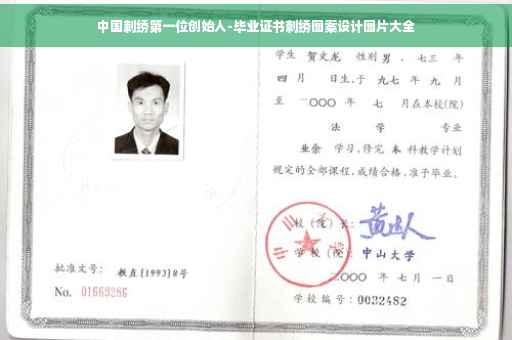 中国刺绣第一位创始人-毕业证书刺绣图案设计图片大全
学生 贺文龙 性别 男 、七三 年
四 月 日生,于 九七 年 九 月
至 二〇〇〇 年 七 月在本校(院)
法 学 专业
业余 学习,修完 本 科教学计划
规定的全部课程,成绩合格,准予毕业。
校(院)长:
学 校(院): 中山大学
二〇〇〇 年 七 月 一 日
批准文号: 教直(1993)8号
No. 01663286
学校编号: 0032482